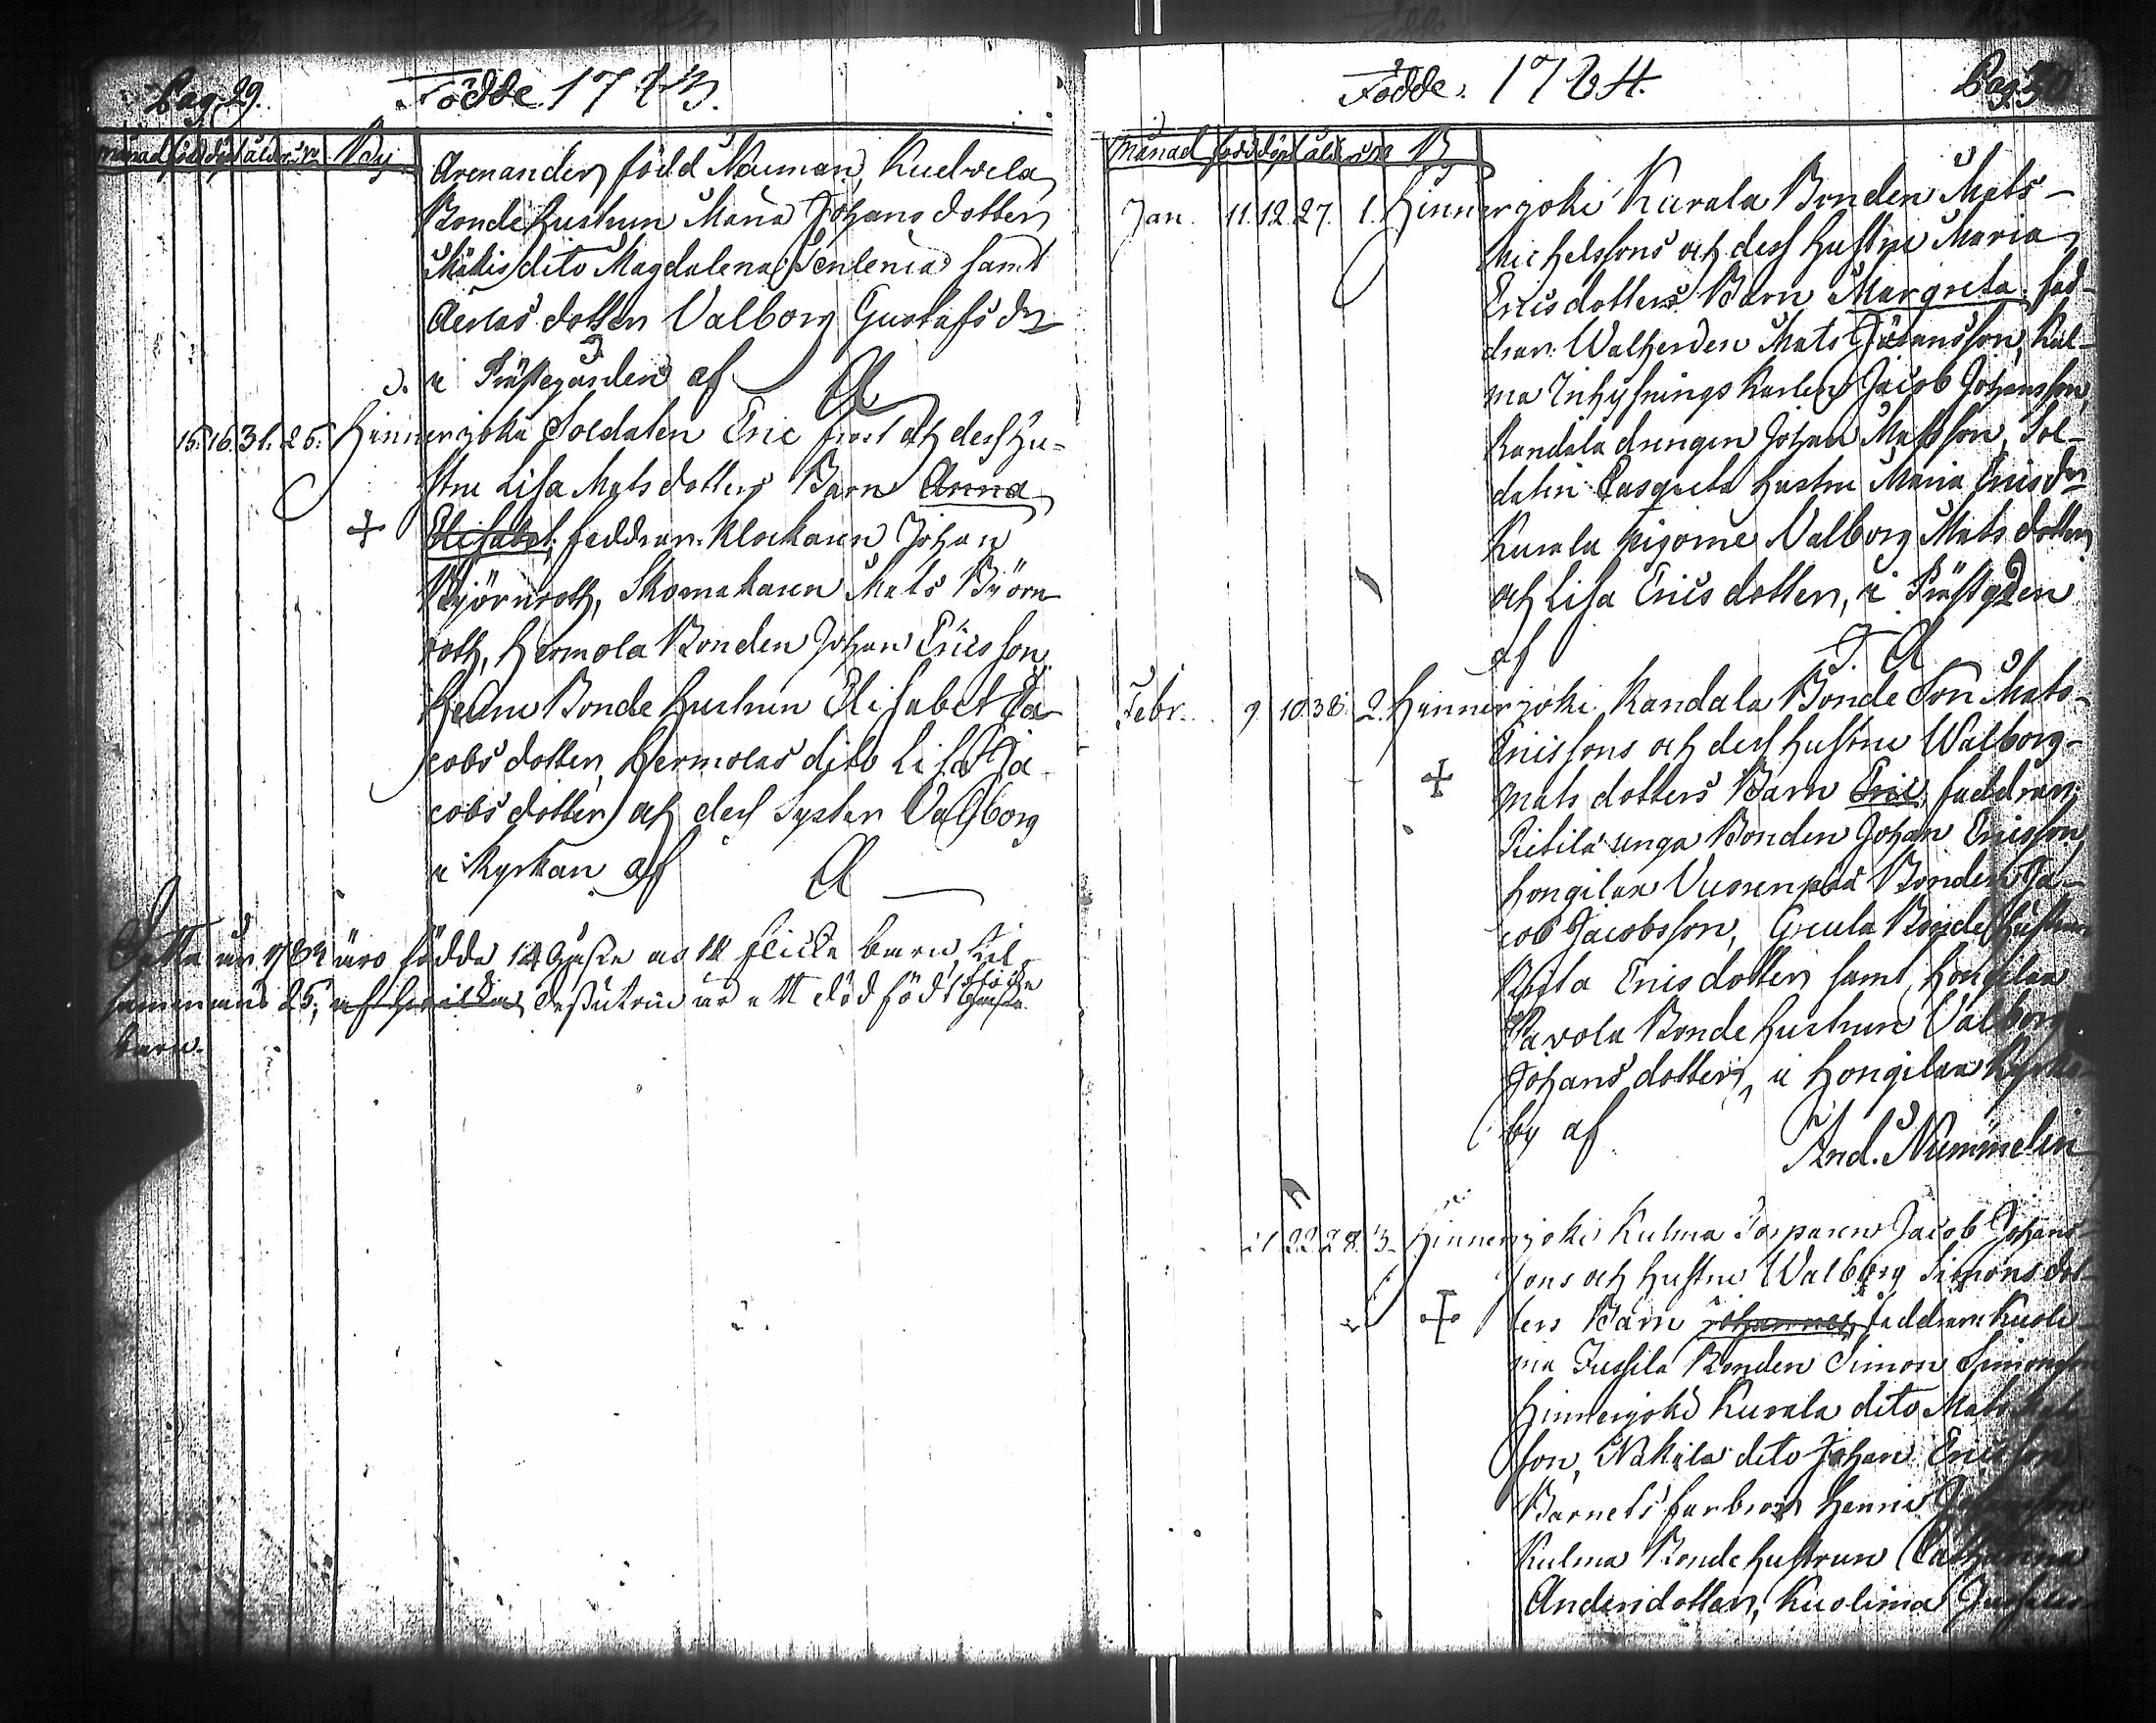 Pag. 29. Födde 1783.
Månad född döpt åld: N:o
Arenander född Neuman, Kudvela
Bonde hustrun Maria Johans dotter,
Mäkis dito Magdalena Senlenia samt
dotter Valborg Gustafs dr
i Prästegården af A
15. 16. 31. 25. Hinnerjoki Soldaten Eric frost och dess hu-
stru Lisa Mats dotters Barn Anna
Elisabet, faddrar: Klockaren Johan
Björnroth, Skomakaren Mats Björn-
roth, Hermola Bonden Johan Ericsson,
Bonde hustrun Elisabet Ja-
cobs dotter, Hermolas dito Lisa Ja-
cobs dotter och dess Syster Valborg
i Kyrkan af A
Detta år 1783 äro födde 14 Gosse och 12 flicke barn, til-
sammans 25; af hvilka dessutom är ett död födt flicke
Gosse
barn.
Födde. 1784. Pag. 30
Månad född döpt åld: N:o B
Jan. 11. 12. 27. 1. Hinnerjoki Kurala Bonden Mats
Michelssons och dess hustru Maria
Ericsdotters Barn Margreta, fad-
drar: Mats Johansson, Kul-
ma Inhysnings Karlen Jacob Johansson,
Kandola drengen Johan Matsson, Sol-
daten hustru Maria Ericsdr
Kurala pigorne Valborg Mats dotter
och Lisa Erics dotter, i Prästgden
af J. A
Febr. 9 10 38. 2. Hinnerjoki Kandala Bonde Son Mats
Ericssons och dess hustru Walborg
Mats dotters Barn Eric, faddrar:
Pietilä unga Bonden Johan Ericsson,
Hongilax Vuorenpää Bonden Ja-
cob Jacobsson, Bonde hustrun
Erics dotter samt Hongilax
Pavola Bonde hustrun Valborg
Johans dotter, i Hongilax Kyrko-
by af And. Nummelin
21 22 28. 3. Hinnerjoki Kulma Torparen Jacob Johans-
sons och hustru Walborg Simonsdot-
ters Barn Johannes, faddrar: Kuoli-
ma Jussila Bonden Simon Simonsson
Hinnerjoki Kurala dito Mats Mats-
son, Nakila dito Johan Ericsson
Barnets farbror Henric Johansson
Kulma Bonde hustrun Catharina
Andersdotter, Kuolima Jussilas